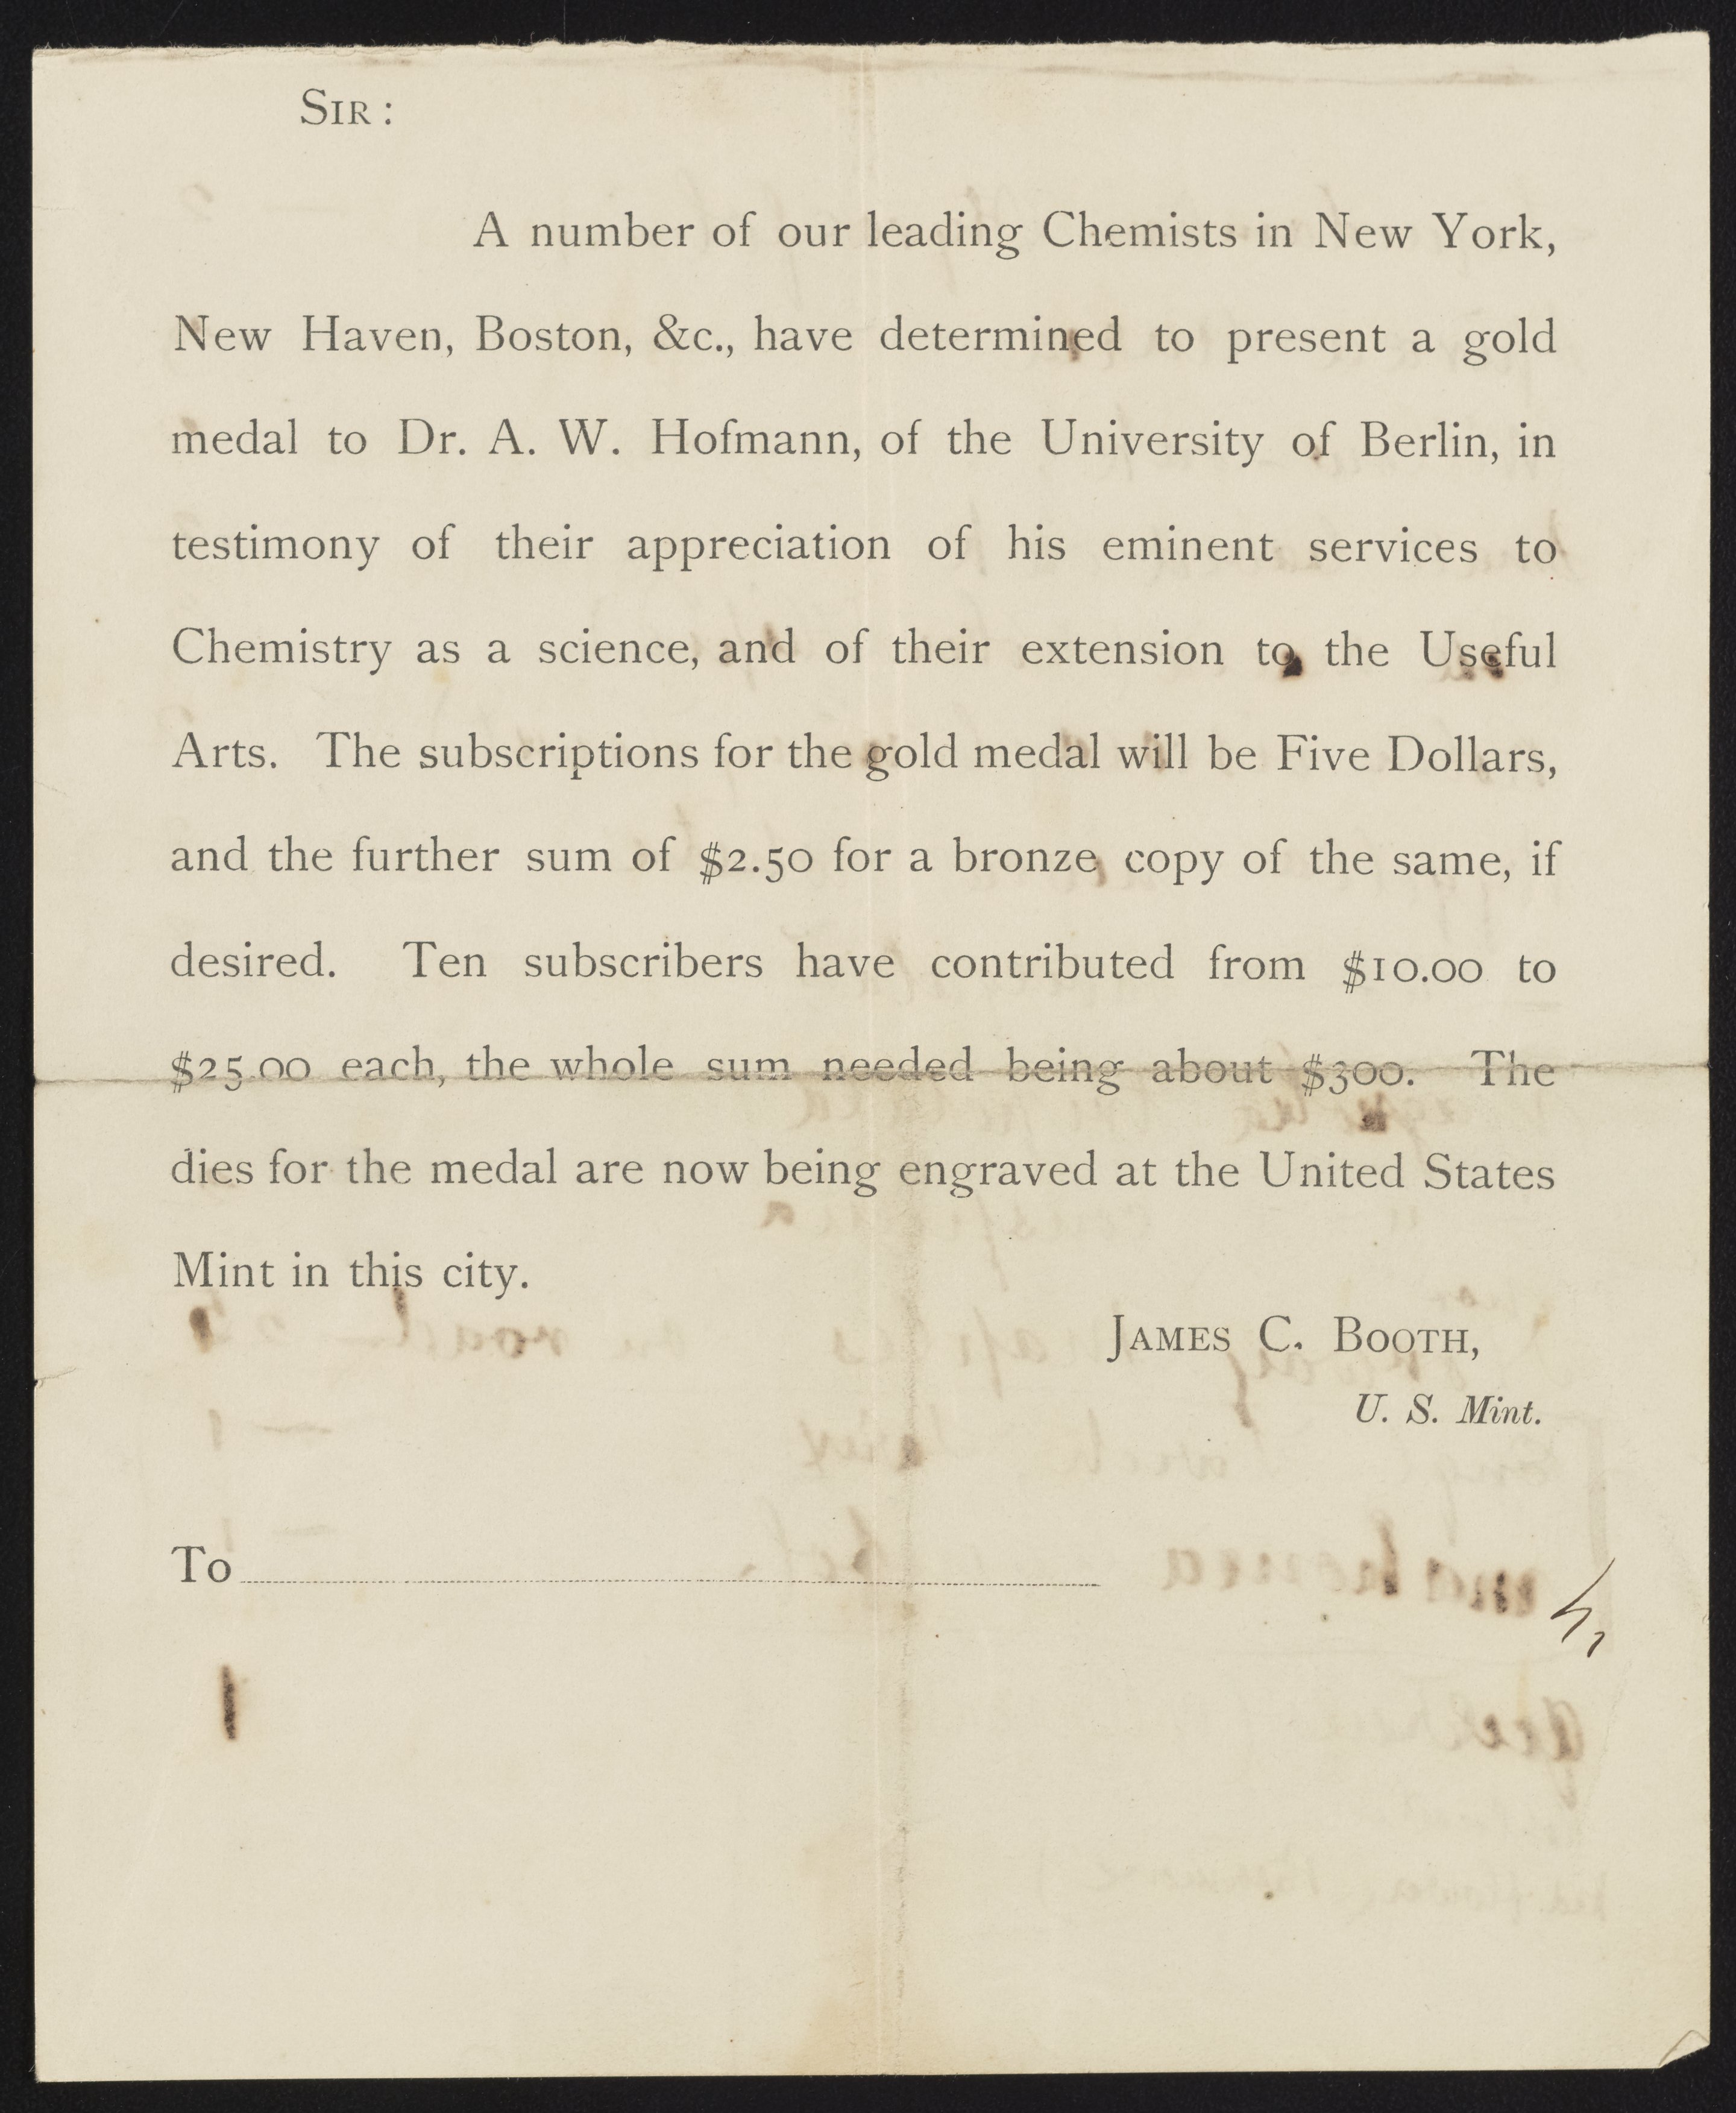 SIR :
A number of our leading Chemists in New York,
New Haven, Boston, &c., have determined to present a gold
medal to Dr. A. W. Hofmann, of the University of Berlin, in
testimony of their appreciation of his eminent services to
Chemistry as a science, and of their extension to the Useful
Arts. The subscriptions for the gold medal will be Five Dollars,
and the further sum of $2.50 for a bronze copy of the same, if
desired. Ten subscribers have contributed from $10.00 to
$25.00 each, the whole sum needed being about $300. The
dies for the medal are now being engraved at the United States
Mint in this city.
JAMES C. BOOTH,
U. S. Mint.
To